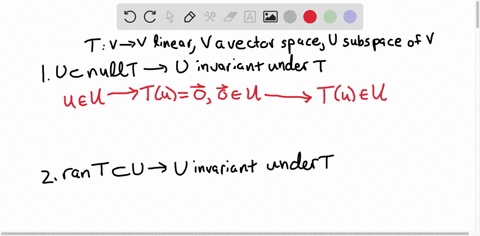 T: V→V linear, V a vector space, U subspace of V
1. U⊂null T → U invariant under T
u∈U → T(u)=0⃗, 0⃗∈U → T(u)∈U
2. ran T⊂U → U invariant under T